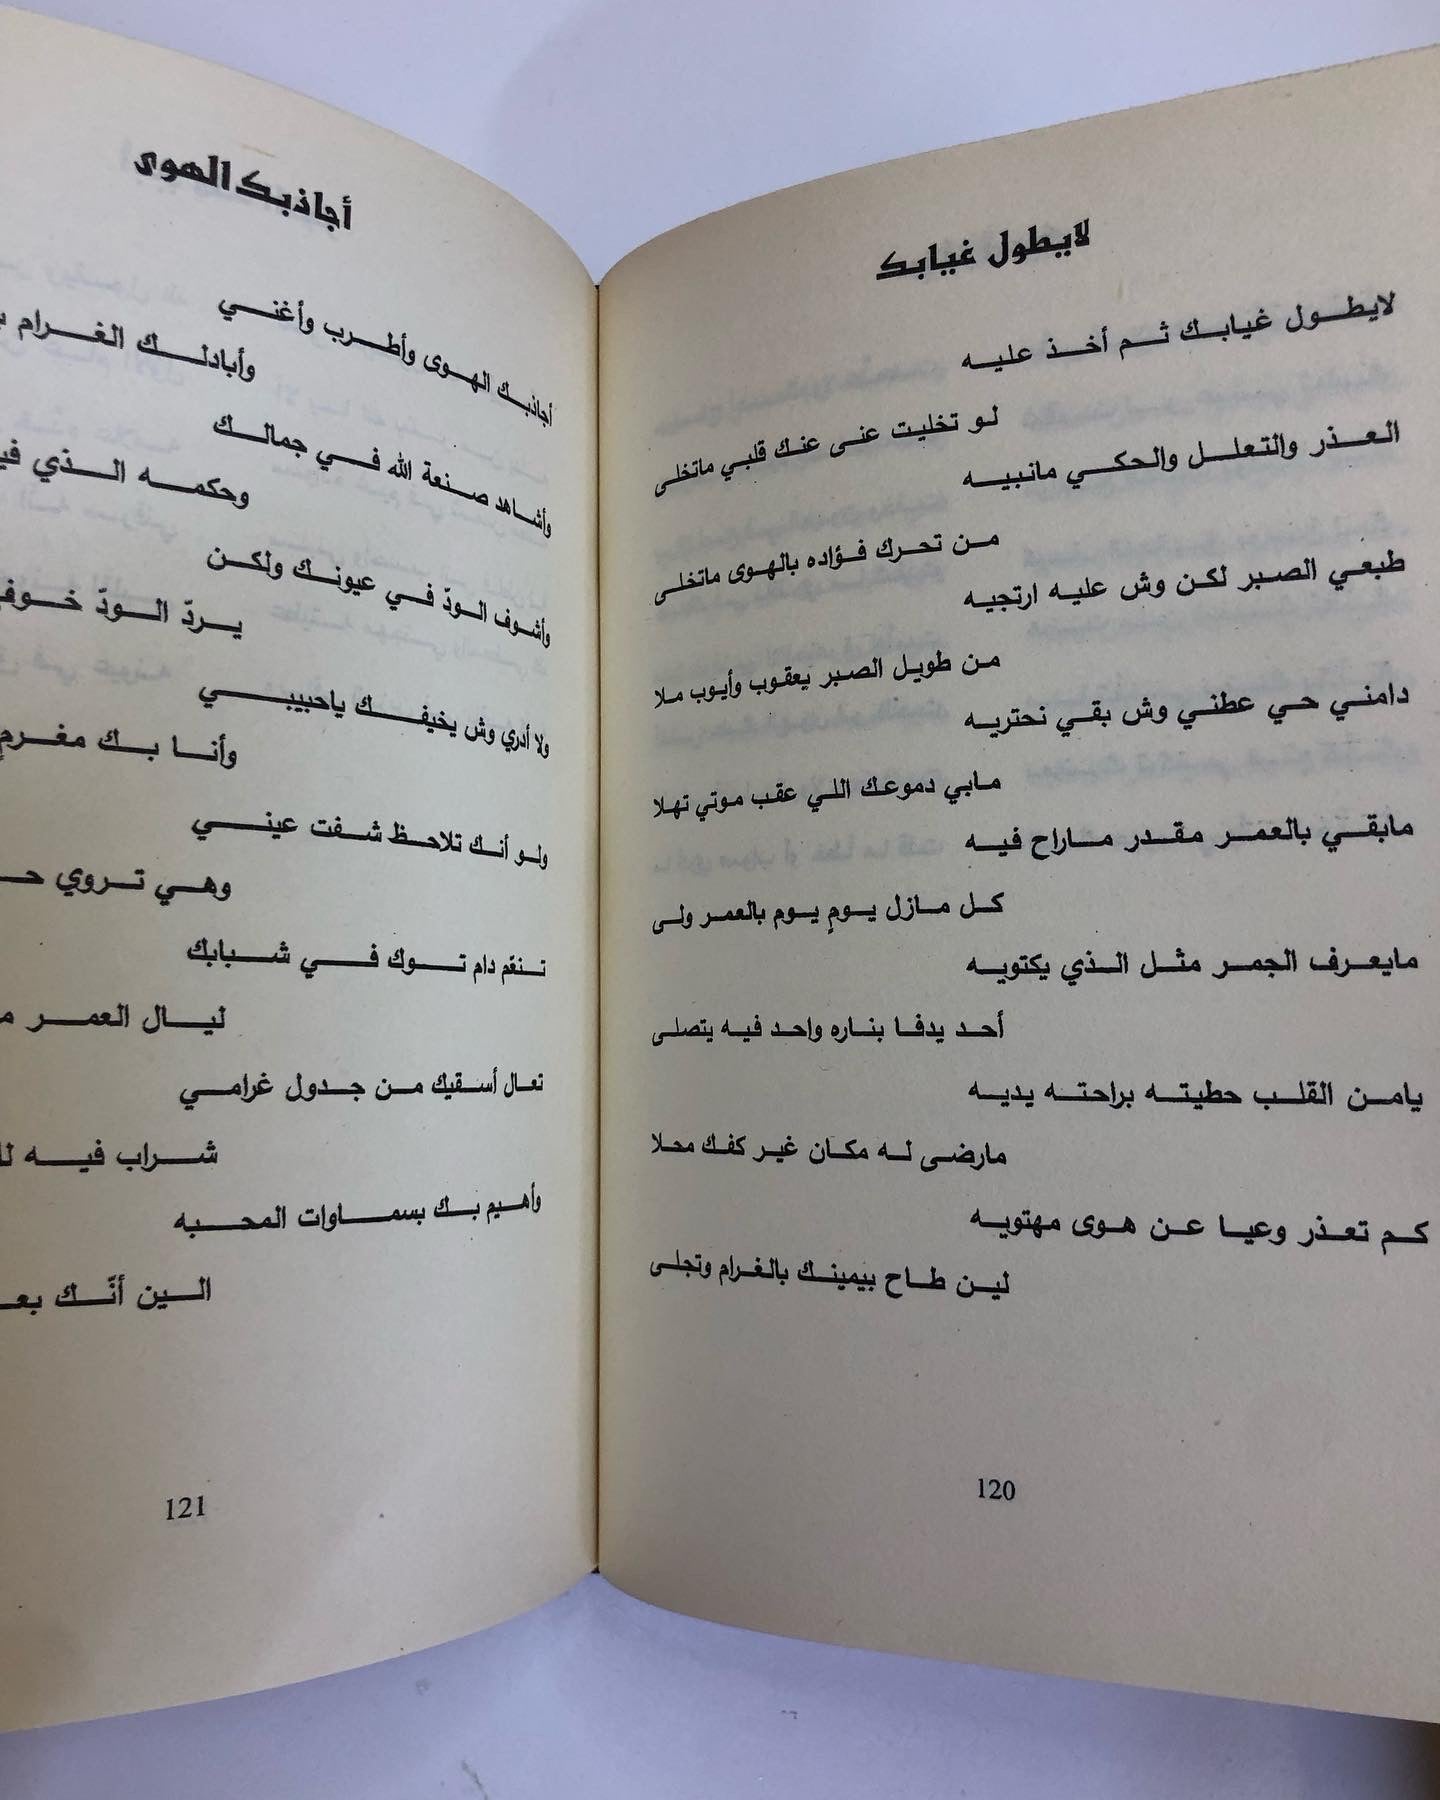 لايطول غيابك
لايطول غيابك ثم أخذ عليه
لو تخليت عنى عنك قلبي ماتخلى
العذر والتعلل والحكي مانبيه
من تحرك فؤاده بالهوى ماتخلى
طبعي الصبر لكن وش عليه ارتجيه
من طويل الصبر يعقوب وأيوب ملا
دامني حي عطني وش بقي نحتريه
مابي دموعك اللي عقب موتي تهلا
مابقي بالعمر مقدر ماراح فيه
كل مازل يومٍ يوم بالعمر ولى
مايعرف الجمر مثل الذي يكتويه
أحد يدفا بناره واحد فيه يتصلى
يامن القلب حطيته براحته يديه
مارضى له مكان غير كفك محلا
كم تعذر وعيا عن هوى مهتويه
لين طاح بيمينك بالغرام وتجلى
120
أجاذبك الهوى
أجاذبك الهوى وأطرب وأغني
وأبادلك الغرام
وأشاهد صنعة الله في جمالك
وحكمه الذي
وأشوف الودّ في عيونك ولكن
يردّ الودّ
ولا أدري وش يخيفك ياحبيبي
وأنا بك مغرم
ولو أنك تلاحظ شفت عيني
وهي تروي
تنعّم دام توك في شبابك
ليال العمر
تعال أسقيك من جدول غرامي
شراب فيه
وأهيم بك بسماوات المحبه
الين أنّك
121